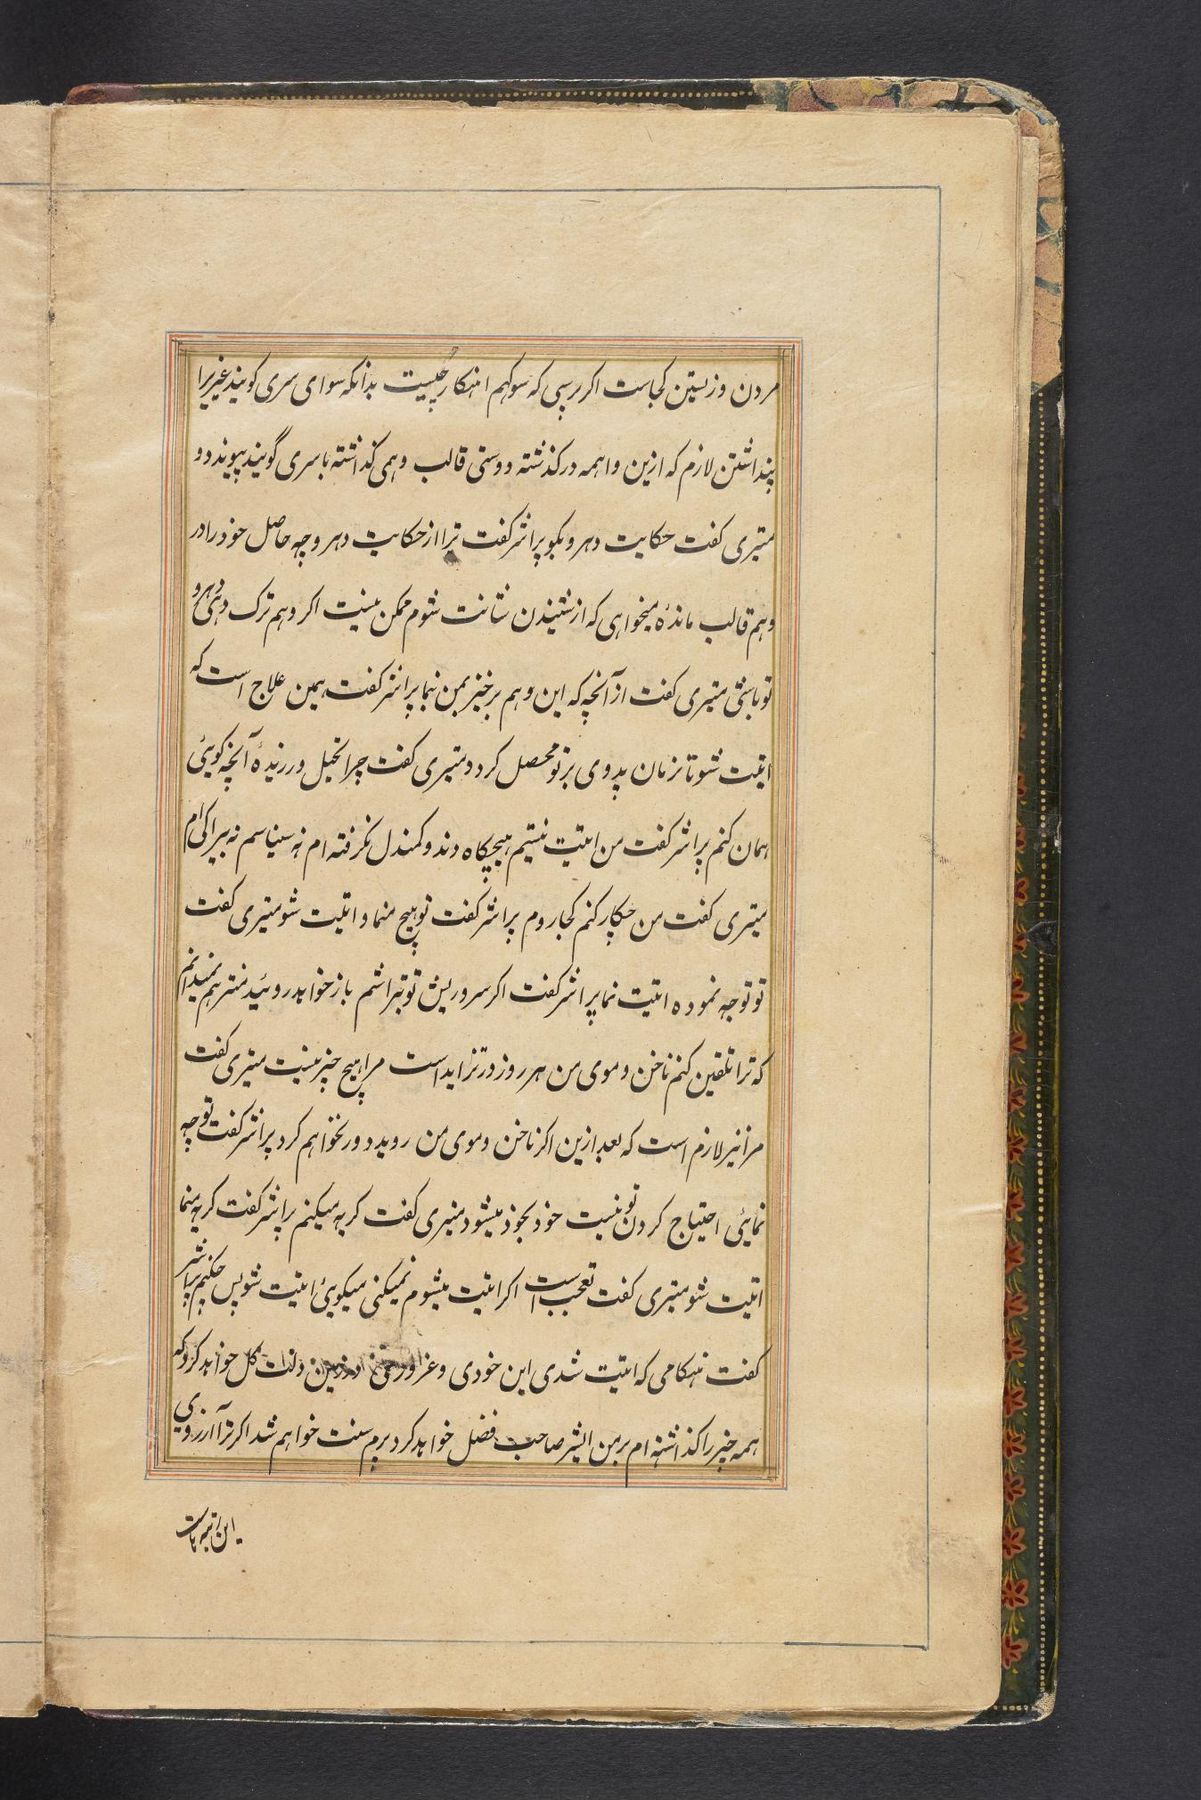 مردن و زیستن کجاست اکر رسپی که سوکهم اهنکار چیست بدانکه سوای سری کویند غیریرا
پنداشتن لازم که ازین واهمه درکذشته دوستی قالب وهمی کذاشته باسری گویند پیوندد و
میتری کفت حکایت دهرو بکو پراشر کفت ترا از حکایت دهرو چه حاصل خود را در
وهم قالب ماندهٔ میخواهی که از شنیدن شانت شوم ممکن نیست اکر وهم ترک دهی دهرو
تو باشی میتری کفت از آنچه که این وهم برخیز بمن نما پراشر کفت همین علاج است که
اتیت شو تا نزمان پدوی بر تو محصل کردد میتری کفت چرا تخیل ورزیدهٔ آنچه کویٔی
همان کنم پراشر کفت من اتیت نیستم هیچکاه دند و کمندل نکرفته ام نه سنیاسم نه بیراکی ام
میتری کفت من چکار کنم کجا روم پراشر کفت تو هیچ منما و اتیت شو میتری کفت
تو توجه نموده اتیت نما پراشر کفت اکر سر و ریش تو بتراشم باز خواهد روئید منتر هم نمیدانم
که ترا تلقین کنم ناخن و موی من هر روز در تزاید است مرا هیچ خبر نیست میتری کفت
مرا نیز لازم است که بعد ازین اکر ناخن و موی من روید دور نخواهم کرد پراشر کفت توجه
نمایٔی احتیاج کردن تو نیست خود بخود میشود میتری کفت کریه میکنم پراشر کفت کریه منما
اتیت شو میتری کفت تعجب است اکر اتیت میشوم نمیکنی میکویٔی اتیت شو پس چکنم پراشر
کفت هنکامی که اتیت شدی این خودی و غرور دلت کل خواهد کرد که
همه چیز را کذاشته ام بر من ایشر صاحب فضل خواهد کرد پرم سنت خواهم شد اکر ترا آرزوی
این رتبه است